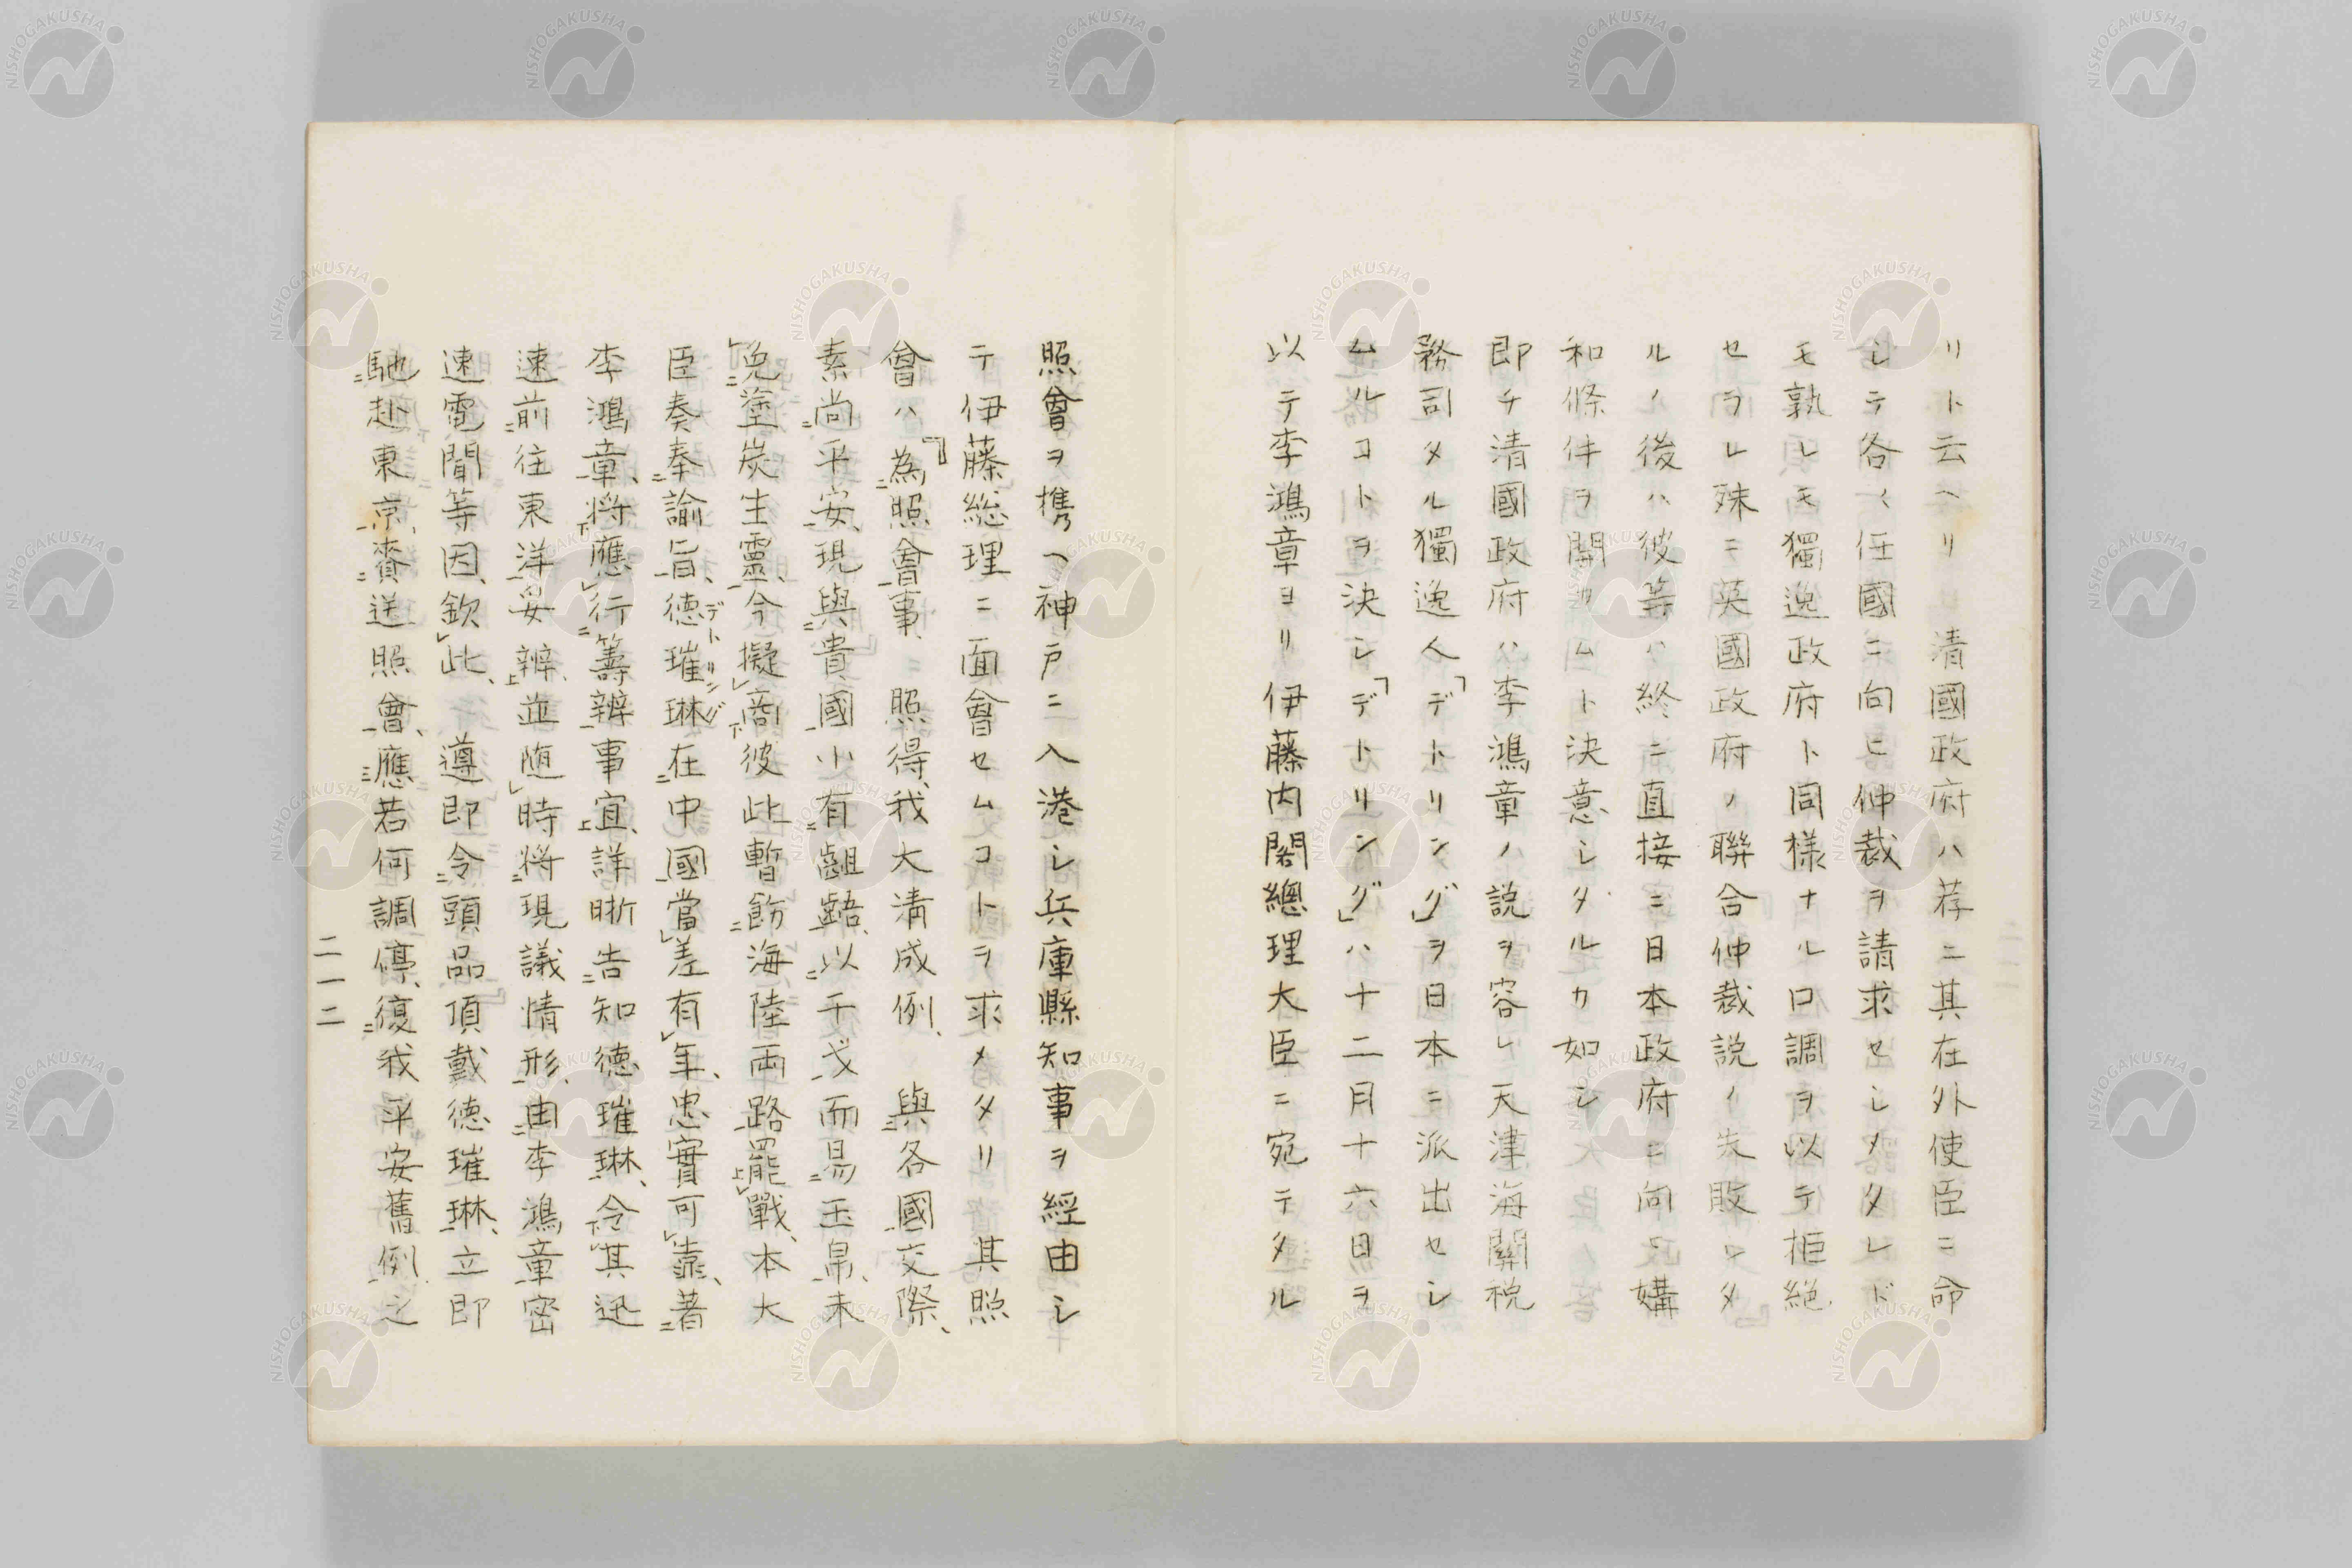 リト云ヘリ　清國政府ハ荐ニ其在外使臣ニ命
シテ各〻任國ニ向ヒ仲裁ヲ請求セシメタレド
モ孰レモ獨逸政府ト同様ナル口調ヲ以テ拒絶
セラレ殊ニ英國政府ノ聯合仲裁説ノ失敗シタ
ルノ後ハ彼等ハ終ニ直接ニ日本政府ニ向ヒ媾
和條件ヲ開カムト決意シタルカ如シ
即チ清國政府ハ李鴻章ノ説ヲ容レ天津海關税
務司タル獨逸人「デトリング」ヲ日本ニ派出セシ
ムルコトヲ決シ「デトリング」ハ十二月十六日ヲ
以テ李鴻章ヨリ伊藤内閣總理大臣ニ宛テタル
照會ヲ携ヘ神戸ニ入港シ兵庫縣知事ヲ經由シ
テ伊藤総理ニ面會セムコトヲ求メタリ　其照
會ハ『為㆓照會㆒事、照得、我大清成例、與㆓各國㆒交際、
素尚㆓平安㆒、現與㆓貴國㆒小有㆓齟齬㆒、以㆓干戈㆒而易㆓玉帛㆒、未
㆑免㆓塗炭生靈㆒、今擬㆑商㆘彼此暫飭㆓海陸両路㆒罷㆖㆑戰、本大
臣奏奉㆓諭旨㆒、德璀琳在㆓中國㆒當㆑差有㆑年、忠實可㆑靠、著㆓
デトリング
李鴻章㆒、将㆘應㆑行㆓籌辦㆒事宜㆖、詳晰告㆓知德璀琳㆒、令㆘其迅
速前㆓往東洋㆒妥辦㆖、並随㆑時将㆓現議情形㆒、由㆓李鴻章㆒密
速電聞等因、欽㆑此、　遵即令㆓頭品頂戴德璀琳㆒、立即
馳㆓赴東京㆒、賚㆓送照會㆒、應㆓若何調停㆒、復㆓我平安舊例㆒之
二一二
NISHOGAKUSHA